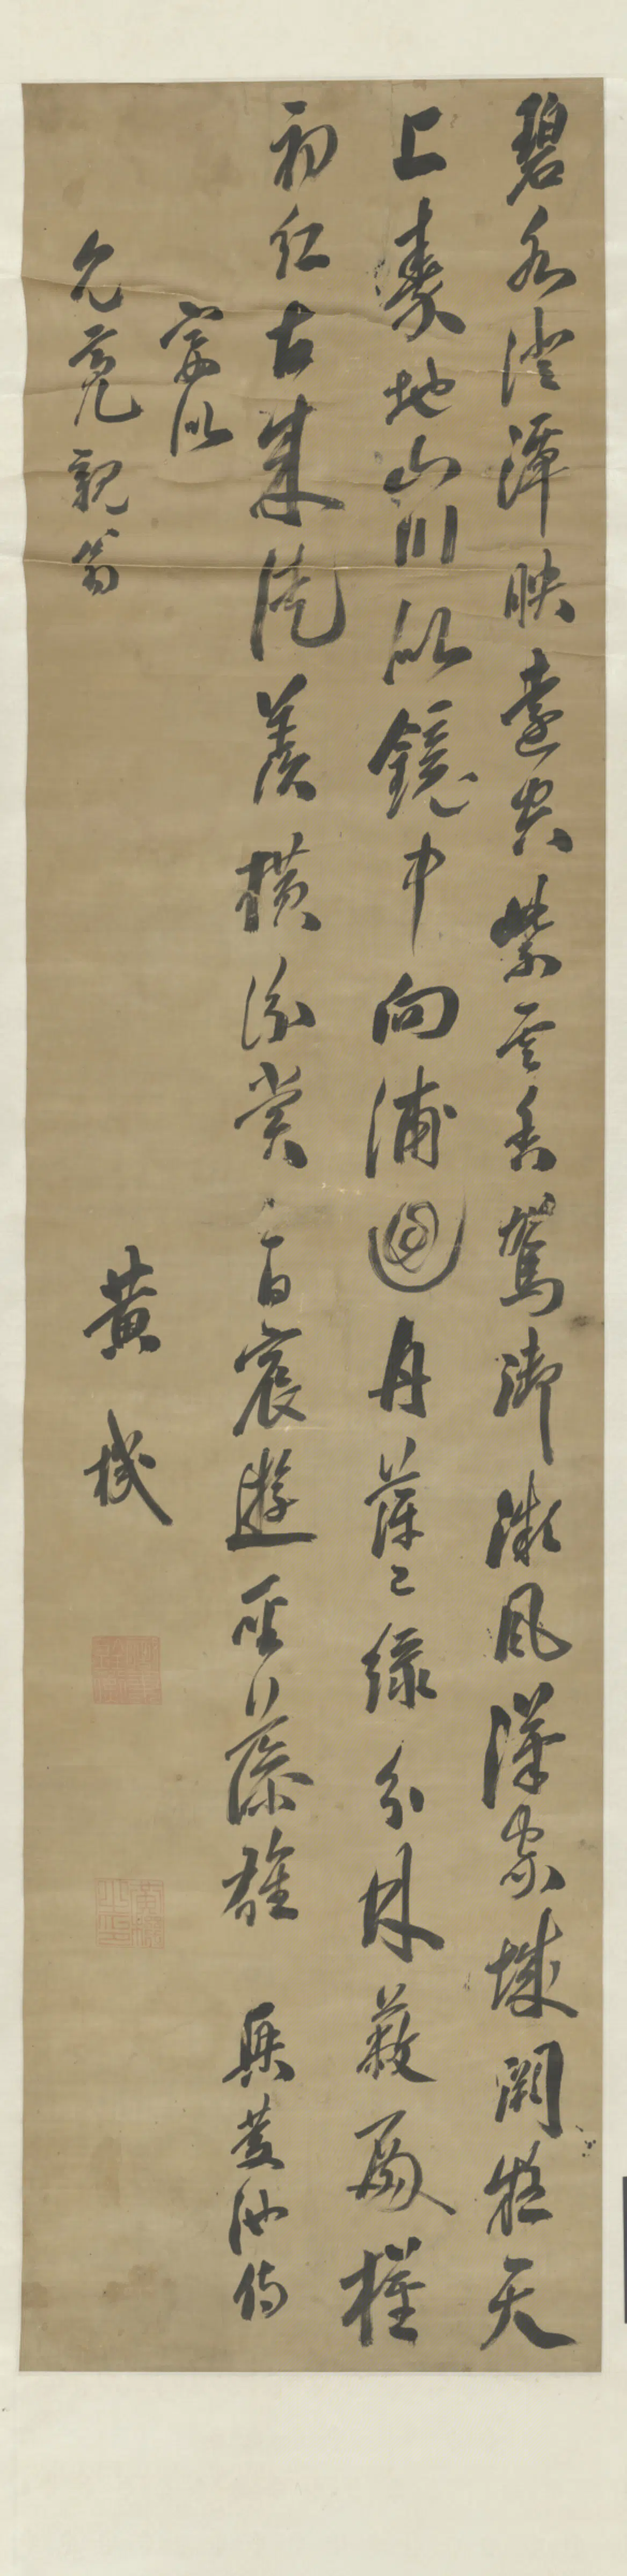 碧水澄潭映遠空紫雲香駕御微風漢家城闕疑天
上秦地山川似鏡中向浦回舟萍已綠分林蔽殿槿
初紅古來徒羨橫汾賞今日宸遊聖藻雄 興慶池侍
宴似
允亮親翁
黃機
黃機之印